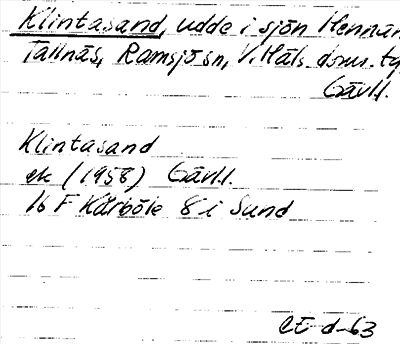 Klintasand, udde i sjön Hennan
Tallnäs, Ramsjö sn, V. Häls. doms.
Gävl.l.
Klintasand
ek (1958) Gävl.l.
16 F Kårböle 8 i Sund
CE d-63